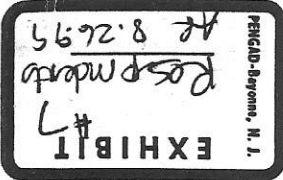 EXHIBIT
#7
Respondents
8.26.95
PENGAD-Bayonne, N. J.